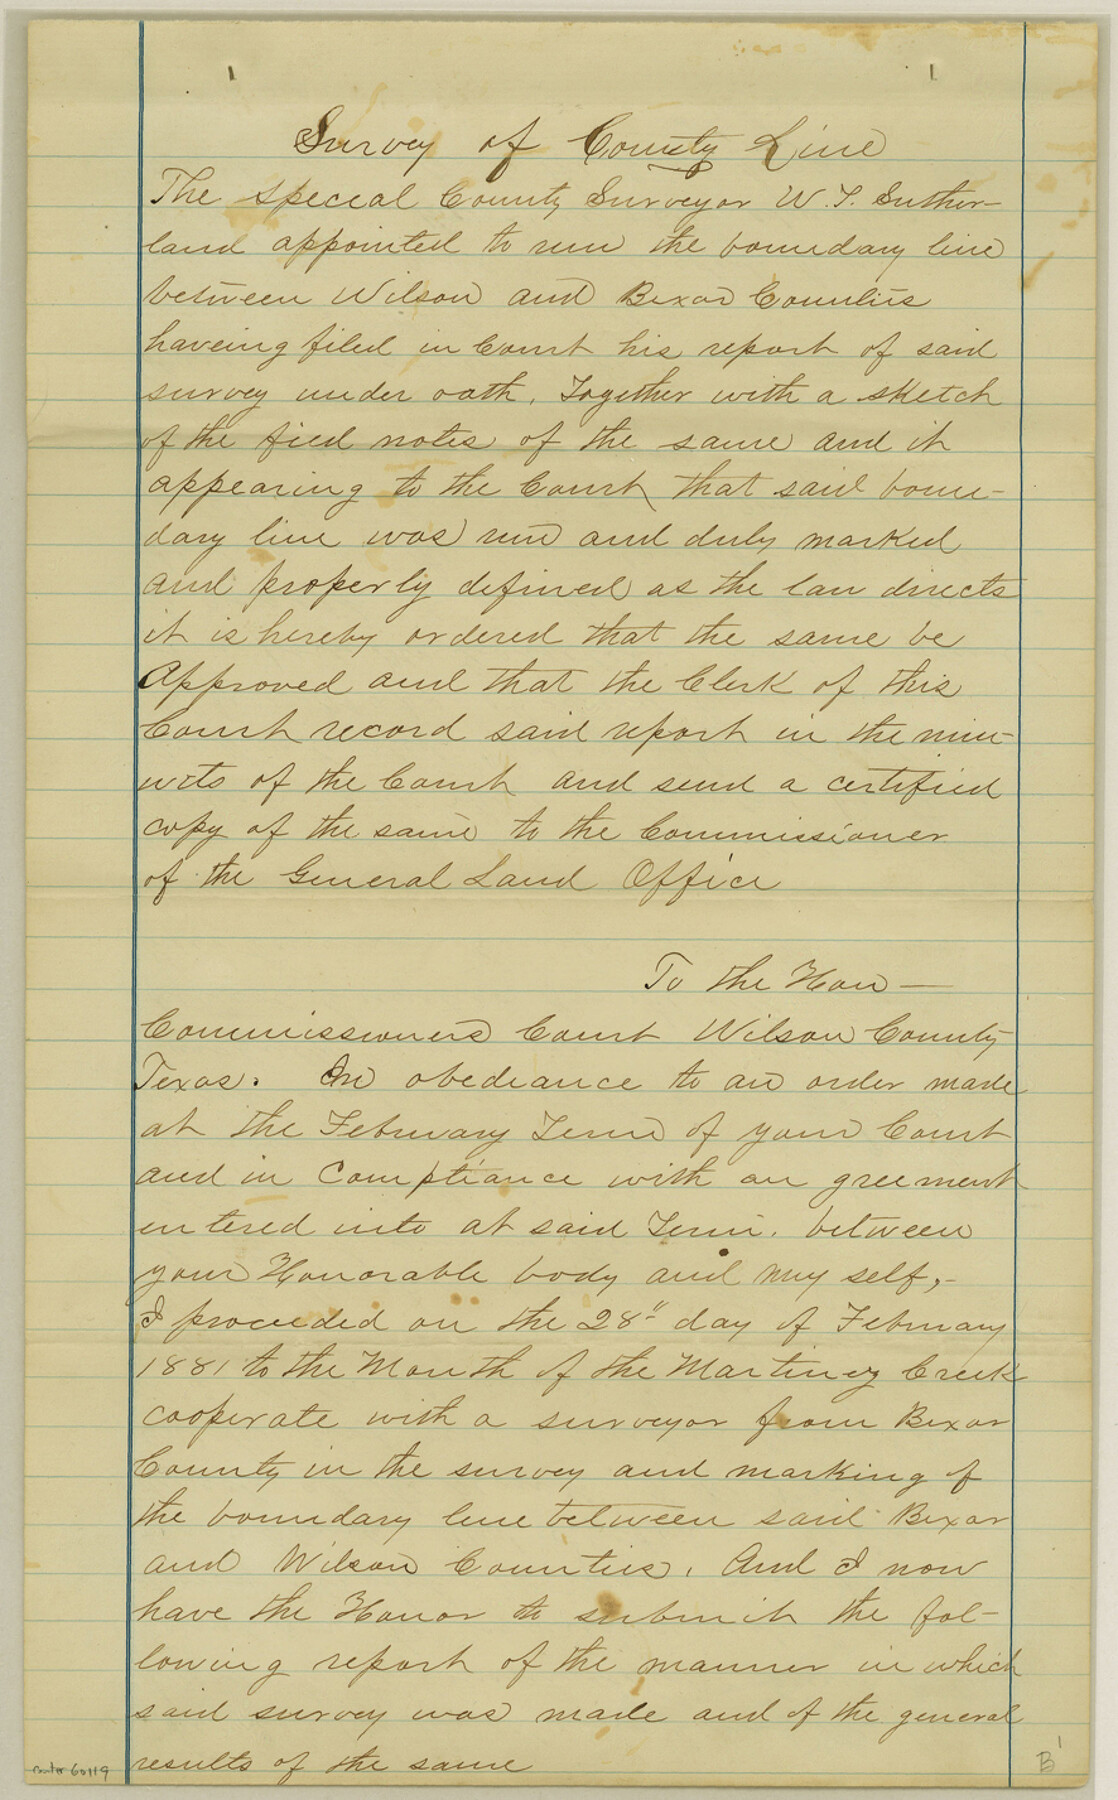 Survey of County Line
The special County Surveyor W. T. Suther-
land appointed to run the boundary line
between Wilson and Bexar Counties
haveing filed in Court his report of said
survey under oath, Together with a sketch
of the fied notes of the same and it
appearing to the Court that said boun-
dary line was run and duly marked
and properly defined as the law directs
it is hereby ordered that the same be
Approved and that the Clerk of this
Court record said report in the min-
uits of the Court and send a certified
copy of the same to the Commissioner
of the General Land Office
To the Hon —
Commissioners Court Wilson County
Texas. In obedeance to an order made
at the February Term of your Court
and in Compliance with an greement
entered into at said Term. between
your Honorable body and my self,-
I proceeded on the 28" day of February
1881 to the Mouth of the Martinez Creek
cooperate with a surveyor from Bexar
County in the survey and marking of
the boundary line between said Bexar
and Wilson Counties. And I now
have the Honor to submit the fol-
lowing report of the manner in which
said survey was made and of the general
results of the same
counter 60119
B1